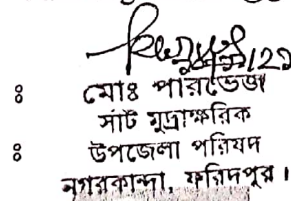 ঃ মোঃ পারভেজ
সাঁট মুদ্রাক্ষরিক
ঃ উপজেলা পরিষদ
নগরকান্দা, ফরিদপুর।